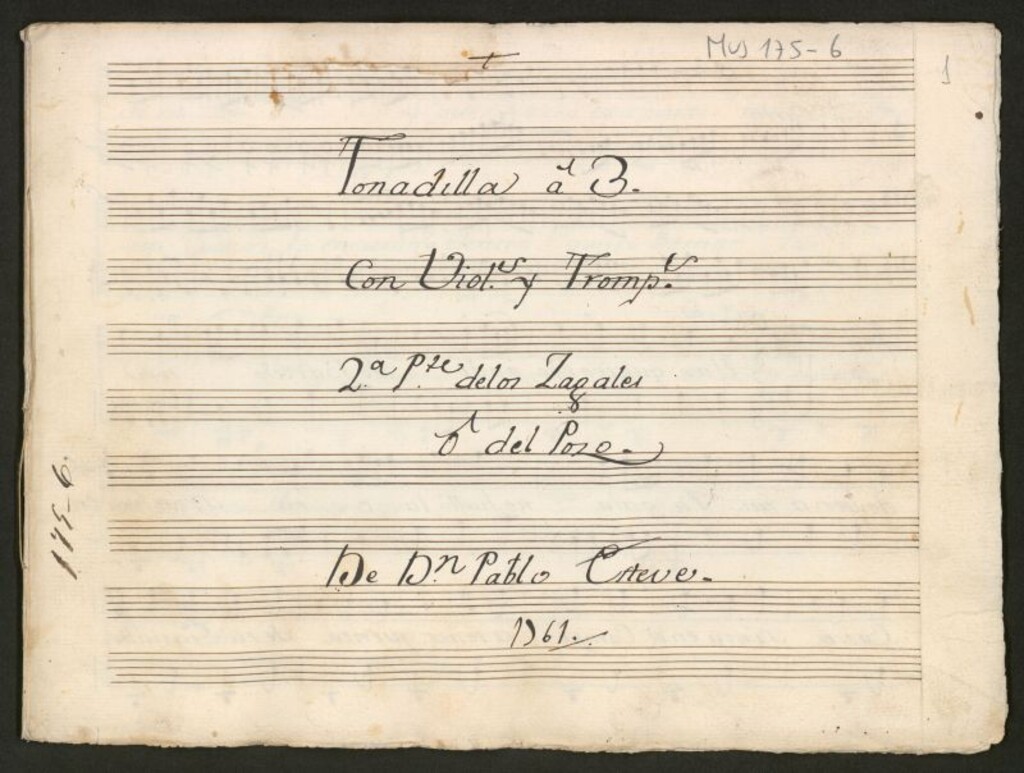 Mus 175-6
1
Tonadilla á 3.
Con Viol.s y Tromp.s
2.a P.te de los Zagales
ó del Pozo.
De D.n Pablo Esteve.
1761.
175-6.